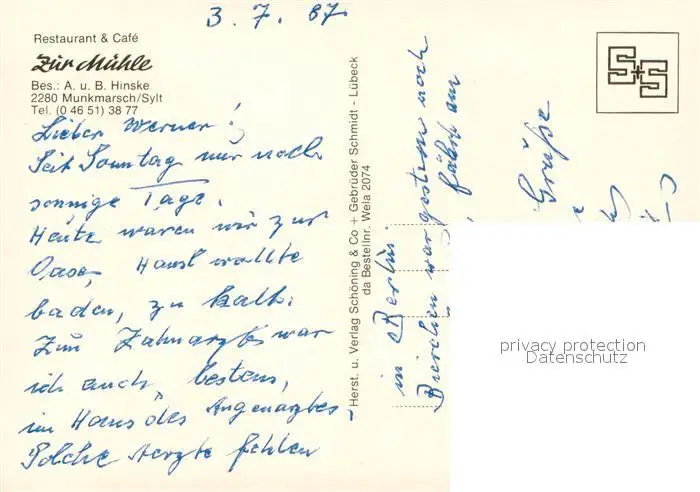 3. 7. 87
Restaurant & Café
Zur Mühle
Bes.: A. u. B. Hinske
2280 Munkmarsch/Sylt
Tel. (0 46 51) 38 77
Lieber Werner!
Seit Sonntag nur noch
sonnige Tage.
Heute waren wir zur
Oase, Hansl wollte
baden, zu kalt.
Zum Zahnarzt war
ich auch, bestens,
im Haus des Augenarztes
Solche Aerzte fehlen
in Berlin.
war gestern noch
fährt am
Grüße
Herst. u. Verlag Schöning & Co + Gebrüder Schmidt - Lübeck
da Bestellnr. Wela 2074
S+S
privacy protection
Datenschutz